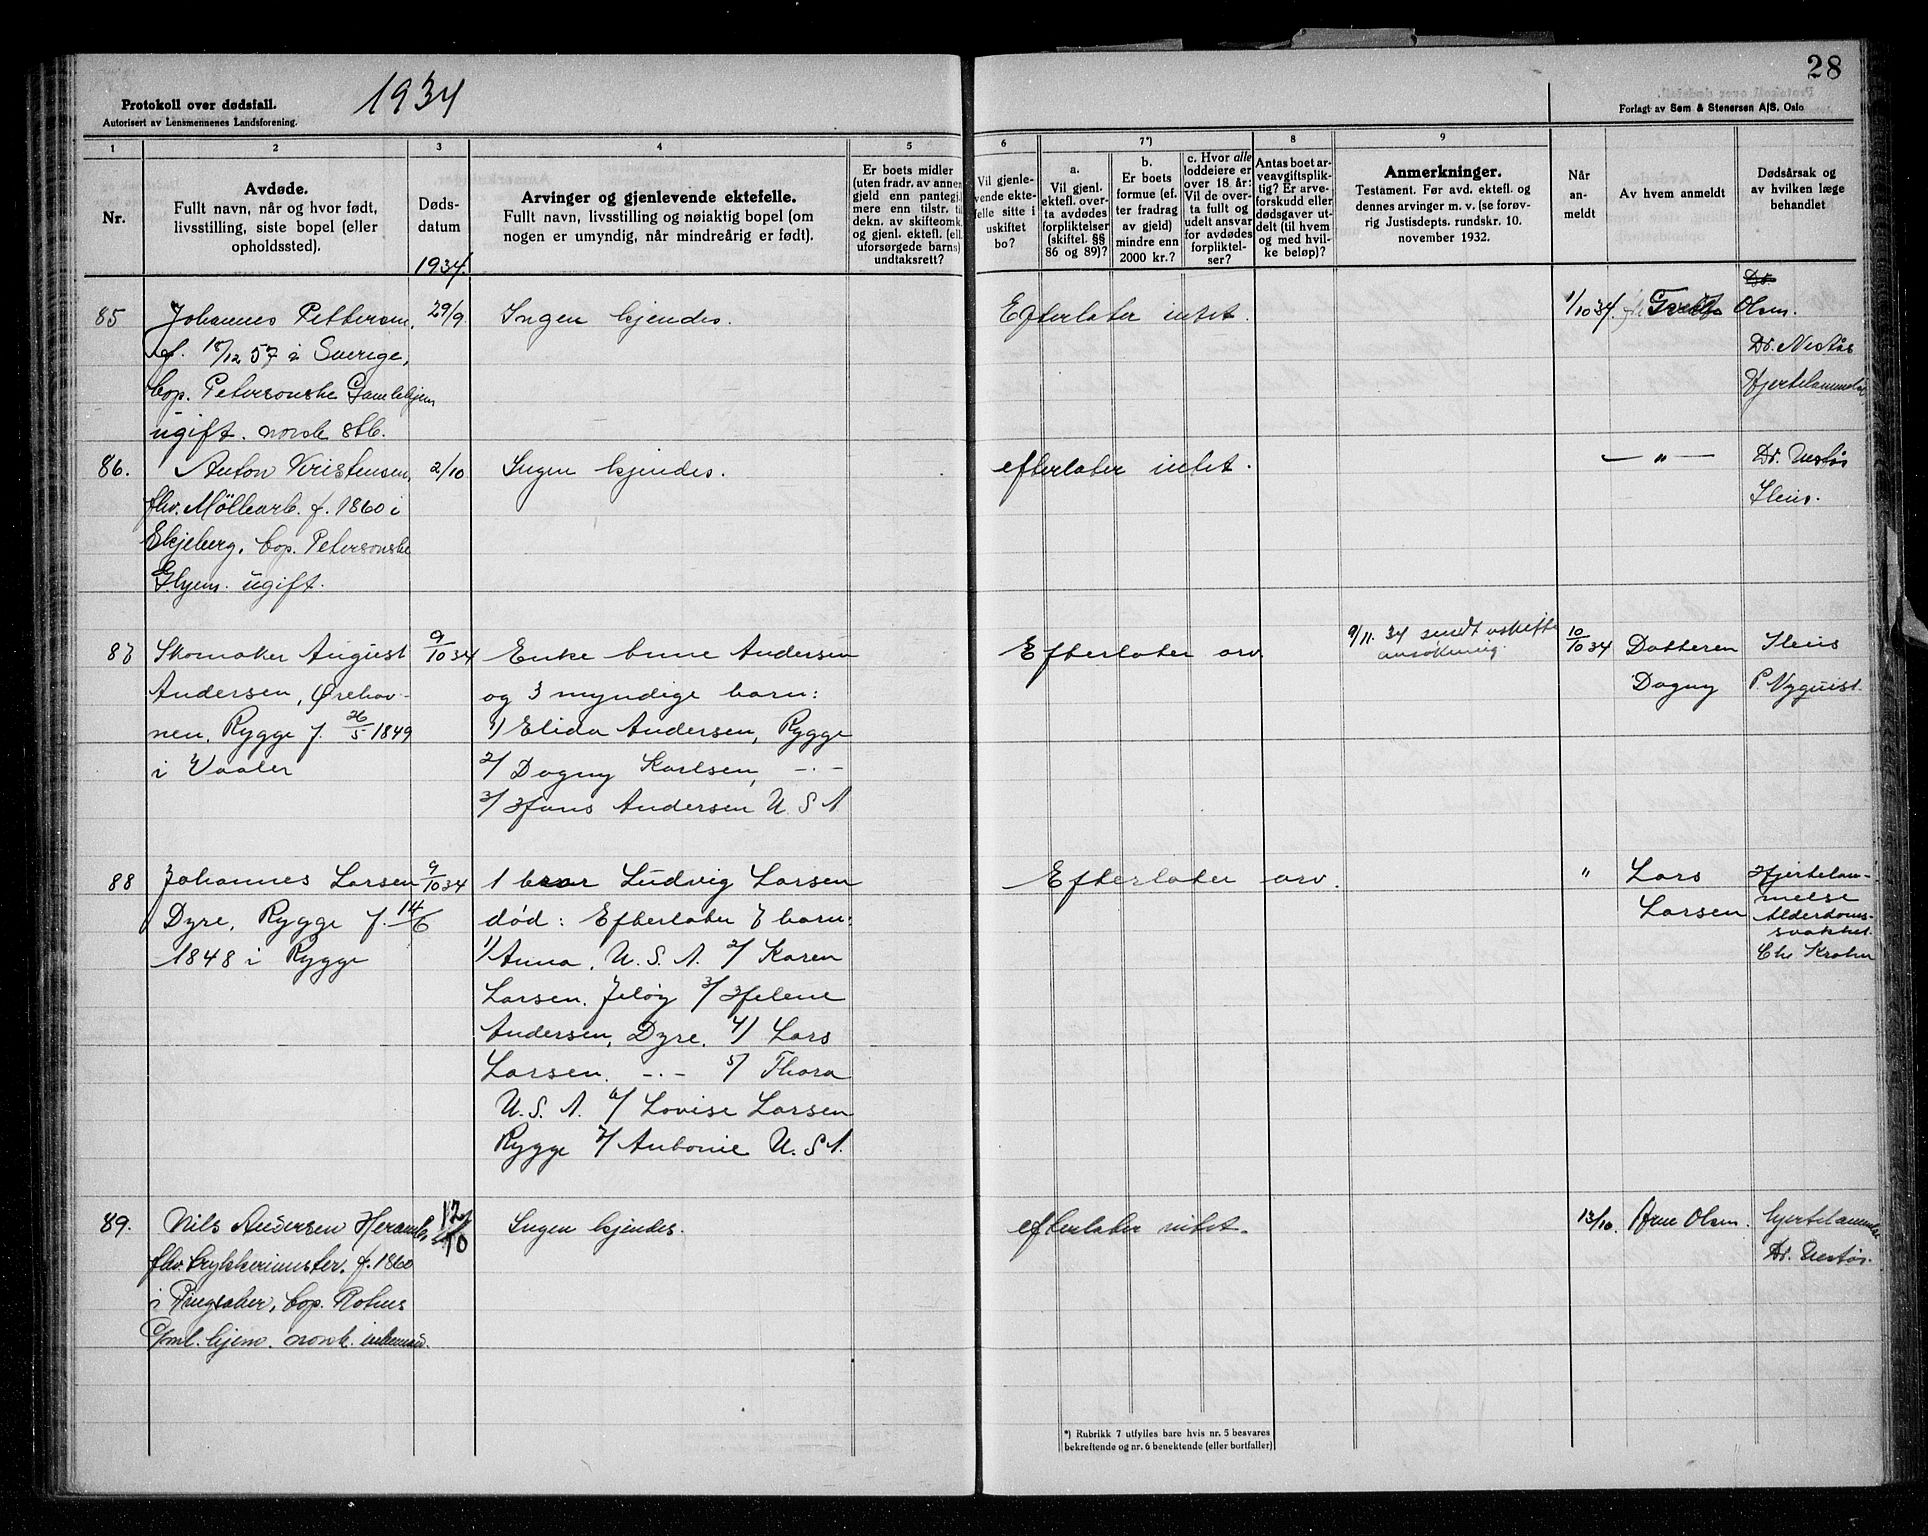 28
1934
Protokoll over dødsfall.
Autorisert av Lensmennenes Landsforening.
Forlagt av Sem & Stenersen A/S, Oslo
1 2 3 4 5 6 7*) 8 9
Nr.
Avdøde.
Fullt navn, når og hvor født,
livsstilling, siste bopel (eller
opholdssted).
Døds-
datum
1934.
Arvinger og gjenlevende ektefelle.
Fullt navn, livsstilling og nøiaktig bopel (om
nogen er umyndig, når mindreårig er født).
Er boets midler
(uten fradr. av annen
gjeld enn pantegj.)
mere enn tilstr. til
dekn. av skifteomk.
og gjenl. ektef. (ell.
uforsørgede barns)
undtaksrett?
Vil gjenle-
vende ekte-
felle sitte i
uskiftet
bo?
a.
Vil gjenl.
ektef. over-
ta avdødes
forpliktelser
(skiftel. §§
86 og 89)?
b.
Er boets
formue (ef-
ter fradrag
av gjeld)
mindre enn
2000 kr.?
c. Hvor alle
loddeiere er
over 18 år:
Vil de over-
ta fullt og
udelt ansvar
for avdødes
forpliktel-
ser?
Antas boet ar-
veavgiftsplik-
tig? Er arve-
forskudd eller
dødsgaver ut-
delt (til hvem
og med hvil-
ke beløp)?
Anmerkninger.
Testament. Før avd. ektefl. og
dennes arvinger m. v. (se forøv-
rig Justisdepts. rundskr. 10.
november 1932.
Når
an-
meldt
Av hvem anmeldt
Dødsårsak og
av hvilken læge
behandlet
85 Johannes Pettersen, 29/9. Ingen kjendes. Efterlater intet. 1/10 34. Olsen.
f. 18/12 57 i Sverige, Dr. Nestås
bop. Petersonske Gamlehjem Hjertelammelse
ugift. norsk stb.
86. Anton Kristensen, 2/10 Ingen kjendes. efterlater intet. — " — Dr. Nestås
fhv. Møllearb. f. 1860 i Ileus.
Skjeberg, bop. Petersonske
G.hjem. ugift.
87 Skomaker August 9/10 34 Enke Anne Andersen Efterlater arv 9/11. 34 sendt uskifte 10/10 34 Datteren Ileus
ansøkning.
Andersen, Ørehav- og 3 myndige barn: Dagny P. Nyquist.
nen, Rygge f. 26/5 1849 1/ Elida Andersen, Rygge
i Vaaler 2/ Dagny Karlsen, -·-
3/ Hans Andersen U S A
88 Johannes Larsen 9/10 34 1 bror Ludvig Larsen Efterlater arv. " Lars Hjertelam-
melse
Dyre, Rygge f. 14/6 død: Efterlater 7 barn: Larsen Alderdoms-
svakhet.
1848 i Rygge 1/ Anna, U. S. A. 2/ Karen Chr Krohn
Larsen, Jeløy 3/ Helene
Andersen, Dyre. 4/ Lars
Larsen. -·- 5/ Thora
U. S. A. 6/ Lovise Larsen
Rygge 7/ Antonie U. S A.
89. Nils Andersen 12/10 Ingen kjendes. efterlater intet. 13/10 Arne Olsen. hjertelammelse
fhv. trykkerimester. f. 1860 Dr. Nestås.
i Ringsaker, bop. Rosnes
Gml. hjem. norsk. enkemand.
*) Rubrikk 7 utfylles bare hvis nr. 5 besvares
bekreftende og nr. 6 benektende (eller bortfaller)